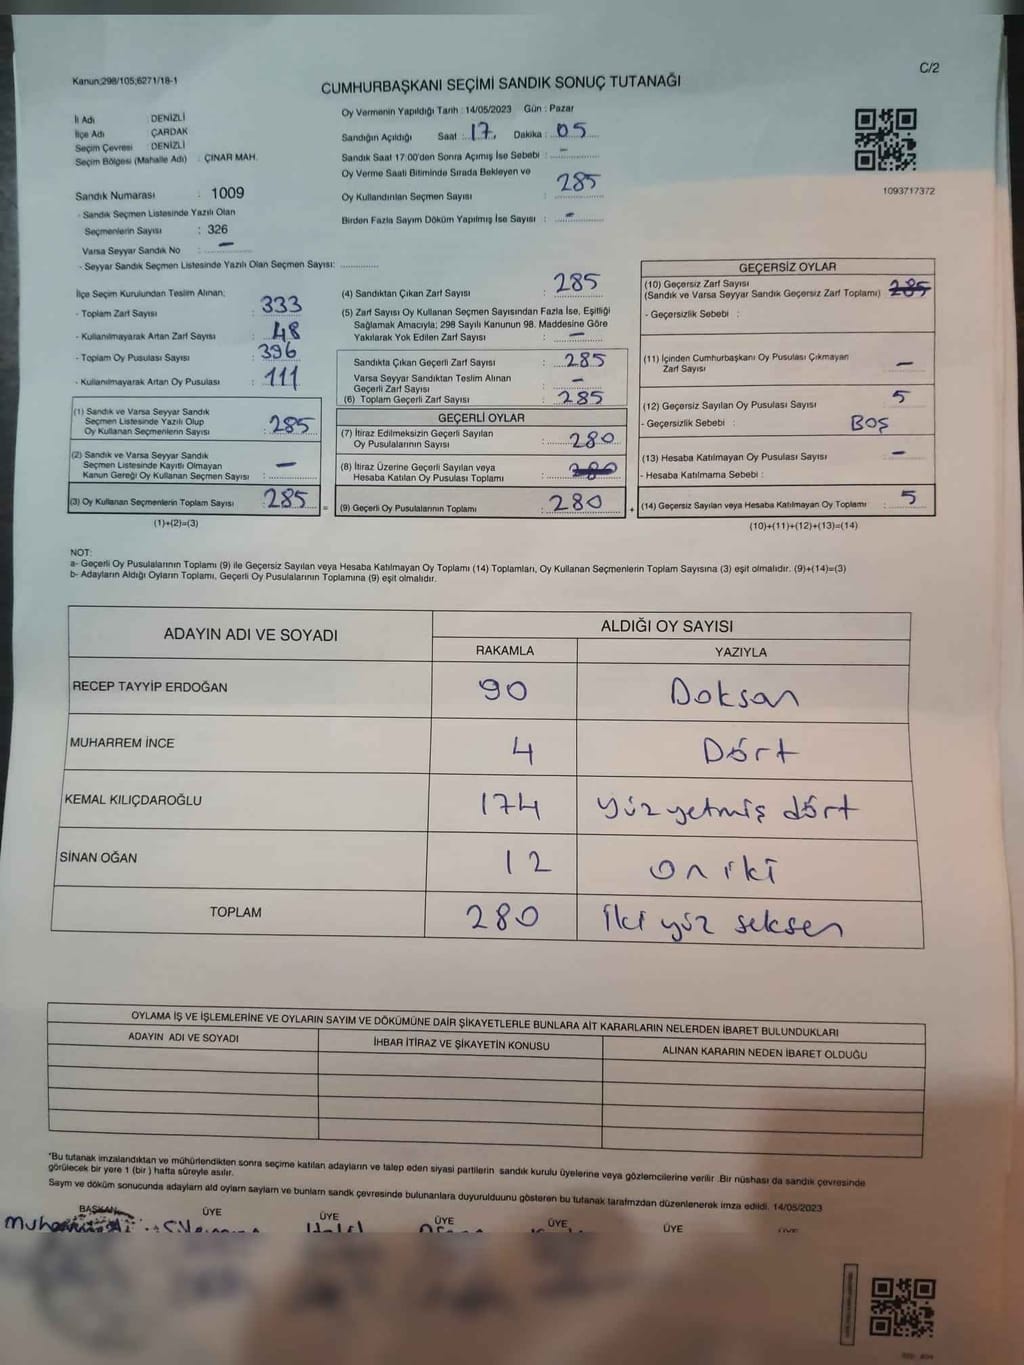 Kanun;298/105;6271/18-1
C/2
CUMHURBAŞKANI SEÇİMİ SANDIK SONUÇ TUTANAĞI
İl Adı : DENİZLİ
İlçe Adı : ÇARDAK
Seçim Çevresi : DENİZLİ
Seçim Bölgesi (Mahalle Adı) : ÇINAR MAH.
Sandık Numarası : 1009
- Sandık Seçmen Listesinde Yazılı Olan
Seçmenlerin Sayısı : 326
Varsa Seyyar Sandık No : –
- Seyyar Sandık Seçmen Listesinde Yazılı Olan Seçmen Sayısı: ..............
Oy Vermenin Yapıldığı Tarih : 14/05/2023 Gün : Pazar
Sandığın Açıldığı Saat : 17. Dakika : 05
Sandık Saat 17:00'den Sonra Açımış İse Sebebi : –
Oy Verme Saati Bitiminde Sırada Bekleyen ve
Oy Kullandırılan Seçmen Sayısı : 285
Birden Fazla Sayım Döküm Yapılmış İse Sayısı : –
1093717372
İlçe Seçim Kurulundan Teslim Alınan;
- Toplam Zarf Sayısı : 333
- Kullanılmayarak Artan Zarf Sayısı : 48
- Toplam Oy Pusulası Sayısı : 396
- Kullanılmayarak Artan Oy Pusulası : 111
(1) Sandık ve Varsa Seyyar Sandık
Seçmen Listesinde Yazılı Olup
Oy Kullanan Seçmenlerin Sayısı : 285
(2) Sandık ve Varsa Seyyar Sandık
Seçmen Listesinde Kayıtlı Olmayan
Kanun Gereği Oy Kullanan Seçmen Sayısı : –
(3) Oy Kullanan Seçmenlerin Toplam Sayısı : 285
(1)+(2)=(3)
(4) Sandıktan Çıkan Zarf Sayısı : 285
(5) Zarf Sayısı Oy Kullanan Seçmen Sayısından Fazla İse, Eşitliği
Sağlamak Amacıyla; 298 Sayılı Kanunun 98. Maddesine Göre
Yakılarak Yok Edilen Zarf Sayısı : –
Sandıkta Çıkan Geçerli Zarf Sayısı : 285
Varsa Seyyar Sandıktan Teslim Alınan
Geçerli Zarf Sayısı : –
(6) Toplam Geçerli Zarf Sayısı : 285
GEÇERLİ OYLAR
(7) İtiraz Edilmeksizin Geçerli Sayılan
Oy Pusulalarının Sayısı : 280
(8) İtiraz Üzerine Geçerli Sayılan veya
Hesaba Katılan Oy Pusulası Toplamı : 280
= (9) Geçerli Oy Pusulalarının Toplamı : 280
GEÇERSİZ OYLAR
(10) Geçersiz Zarf Sayısı
(Sandık ve Varsa Seyyar Sandık Geçersiz Zarf Toplamı) : 285
- Geçersizlik Sebebi :
(11) İçinden Cumhurbaşkanı Oy Pusulası Çıkmayan
Zarf Sayısı –
(12) Geçersiz Sayılan Oy Pusulası Sayısı 5
- Geçersizlik Sebebi : BOŞ
(13) Hesaba Katılmayan Oy Pusulası Sayısı –
- Hesaba Katılmama Sebebi :
+ (14) Geçersiz Sayılan veya Hesaba Katılmayan Oy Toplamı : 5
(10)+(11)+(12)+(13)=(14)
NOT:
a- Geçerli Oy Pusulalarının Toplamı (9) ile Geçersiz Sayılan veya Hesaba Katılmayan Oy Toplamı (14) Toplamları, Oy Kullanan Seçmenlerin Toplam Sayısına (3) eşit olmalıdır. (9)+(14)=(3)
b- Adayların Aldığı Oyların Toplamı, Geçerli Oy Pusulalarının Toplamına (9) eşit olmalıdır.
ADAYIN ADI VE SOYADI ALDIĞI OY SAYISI
RAKAMLA YAZIYLA
RECEP TAYYİP ERDOĞAN 90 Doksan
MUHARREM İNCE 4 Dört
KEMAL KILIÇDAROĞLU 174 yüzyetmiş dört
SİNAN OĞAN 12 on iki
TOPLAM 280 iki yüz seksen
OYLAMA İŞ VE İŞLEMLERİNE VE OYLARIN SAYIM VE DÖKÜMÜNE DAİR ŞİKAYETLERLE BUNLARA AİT KARARLARIN NELERDEN İBARET BULUNDUKLARI
ADAYIN ADI VE SOYADI İHBAR İTİRAZ VE ŞİKAYETİN KONUSU ALINAN KARARIN NEDEN İBARET OLDUĞU
*Bu tutanak imzalandıktan ve mühürlendikten sonra seçime katılan adayların ve talep eden siyasi partilerin sandık kurulu üyelerine veya gözlemcilerine verilir .Bir nüshası da sandık çevresinde
görülecek bir yere 1 (bir ) hafta süreyle asılır.
Sayım ve döküm sonucunda adayların ald oyların sayları ve bunları sandk çevresinde bulunanlara duyurulduunu gösteren bu tutanak tarafmzdan düzenlenerek imza edildi. 14/05/2023
BAŞKAN ÜYE ÜYE ÜYE ÜYE ÜYE ÜYE